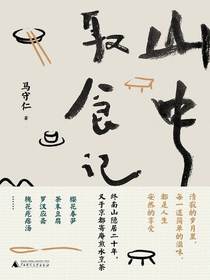 山中
取食记
马守仁 著
清寂的岁月里，
每一道简单的滋味，
都是人生
安然的享受
终南山隐居二十年，
又于京都寄庵煎水烹茶
樱花春笋
茶末豆腐
罗汉应斋
槐花疙瘩汤